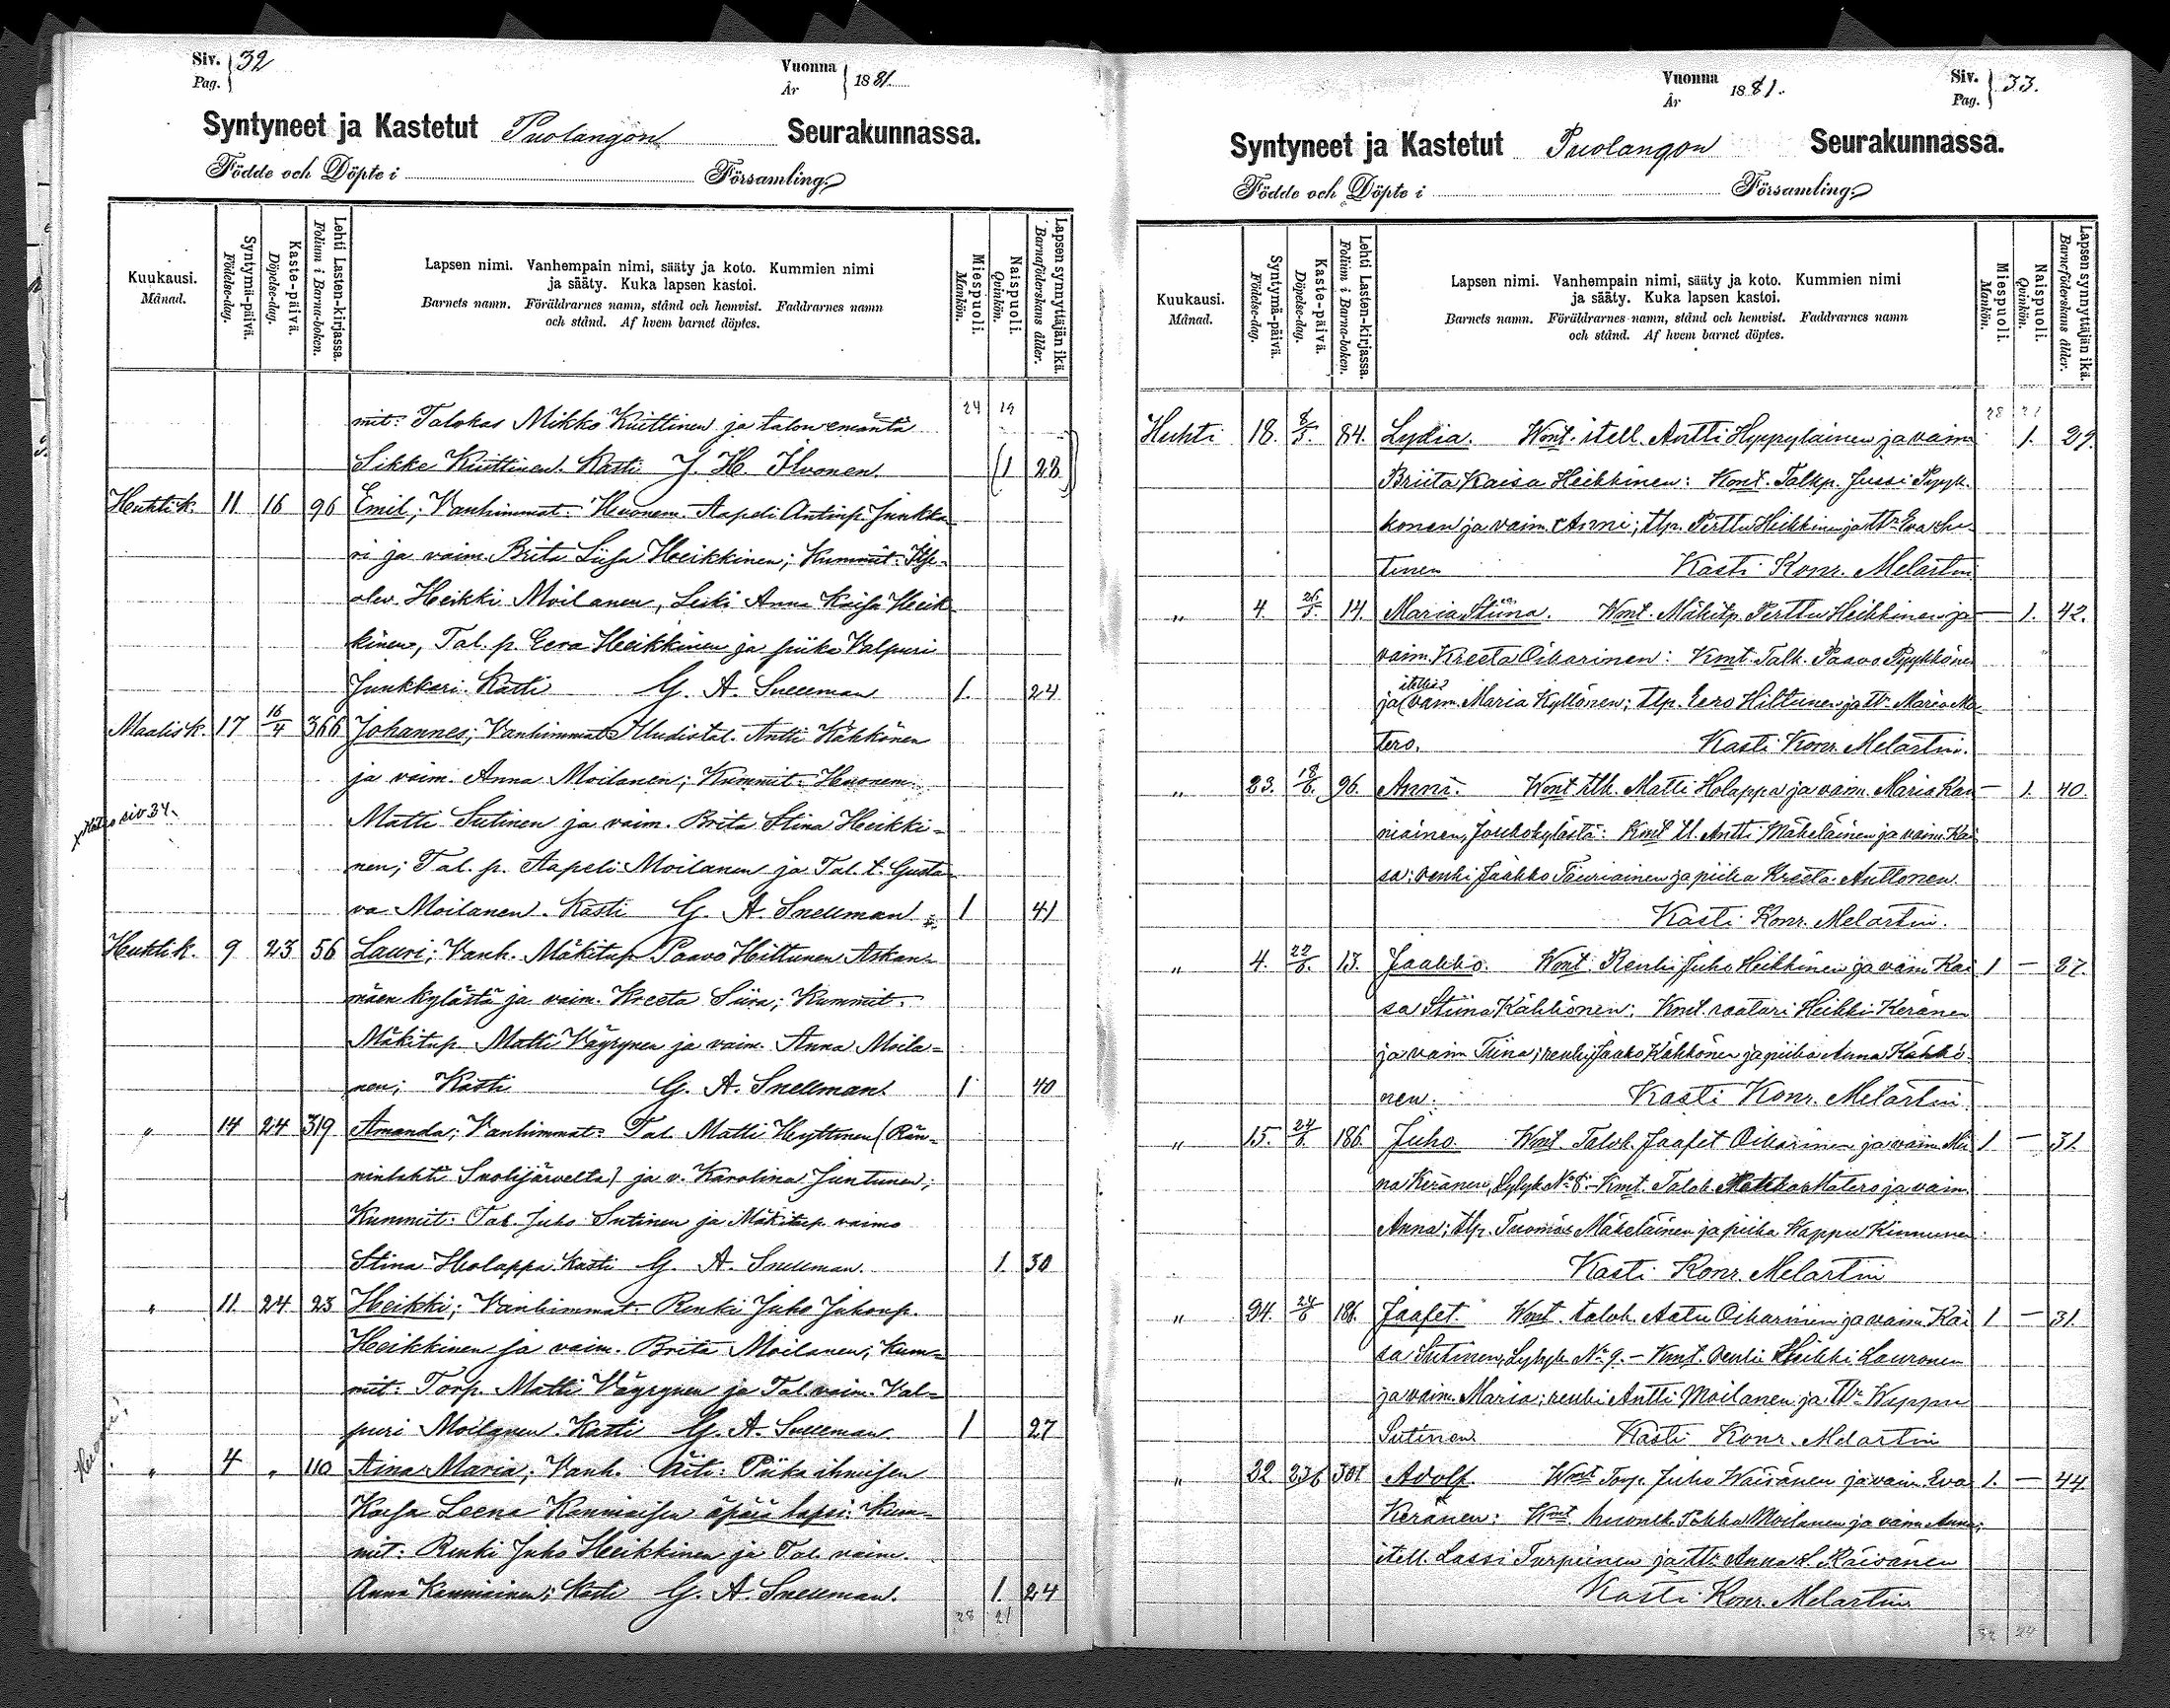 Siv. 32
Pag.
Vuonna 1881.
År
Syntyneet ja Kastetut Puolangon Seurakunnassa.
Födde och Döpte i Församling.
Kuukausi. Månad.
Syntymä-päivä. Födelse-dag.
Kaste-päivä. Döpelse-dag.
Lehti Lasten-kirjassa. Folium i Barna-boken.
Lapsen nimi. Vanhempain nimi, sääty ja koto. Kummien nimi
ja sääty. Kuka lapsen kastoi.
Barnets namn. Föräldrarnes namn, stånd och hemvist. Faddrarnes namn
och stånd. Af hvem barnet döptes.
Miespuoli. Mankön.
Naispuoli. Qvinkön.
Lapsen synnyttäjän ikä. Barnaföderskans ålder.
24 19
mit: Talokas Mikko Kiuttinen ja talon emäntä
Sikke Kiuttinen. Kasti J. H. Ilvonen. (1 28)
Huhtik. 11 16 96 Emil; Vanhimmat: Huonem. Aapeli Antinp. Junkka
ri ja vaim. Brita Liisa Heikkinen; Kummit: Itse-
olev. Heikki Moilanen, Leski Anna Kaisa Heik
kinen, Tal. p. Eera Heikkinen ja piika Valpuri
Junkkari. Kasti G. A. Snellman 1. 24
Maalisk. 17 16/4 366 Johannes; Vanhimmat Uudistal. Antti Kähkönen
ja vaim. Anna Moilanen; Kummit: Huonem.
Matti Sutinen ja vaim. Brita Stina Heikki-
nen; Tal. p. Aapeli Moilanen ja Tal. t. Gusta
va Moilanen. Kasti G. A. Snellman 1 41
Katso siv 34.
Huhtik. 9 23 56 Lauri; Vanh. Mäkitup Paavo Hiltunen Askan-
mäen kylästä ja vaim. Kreeta Siira; Kummit:
Mäkitup Matti Väyrynen ja vaim. Anna Moila-
nen; Kasti G. A. Snellman. 1 40
" 14 24 319 Amanda; Vanhimmat: Tal. Matti Hyttinen (Rän-
ninlahti Suolijärveltä) ja v. Karolina Juntunen;
Kummit: Tal. Juho Sutinen ja Mäkitup. vaimo
Stina Holappa. Kasti G. A. Snellman. 1. 30
" 11 24 23 Heikki; Vanhimmat: Renki Juho Juhonp.
Heikkinen ja vaim. Brita Moilanen; Kum-
mit: Torp. Matti Väyrynen ja Tal. vaim. Val-
puri Moilanen. Kasti G. A. Snellman. 1 27
" 4 " 110 Aina Maria; Vanh. Äiti: Piika ihmisen
Kaisa Leena Kanniaisen äpärä lapsi: Kum-
mit: Renki Juho Heikkinen ja Tal. vaim.
Anna Kanniainen; Kasti G. A. Snellman. 1. 24
28 21
Vuonna 1881.
År
Siv. 33.
Pag.
Syntyneet ja Kastetut Puolangon Seurakunnassa.
Födde och Döpte i Församling.
Kuukausi. Månad.
Syntymä-päivä. Födelse-dag.
Kaste-päivä. Döpelse-dag.
Lehti Lasten-kirjassa. Folium i Barna-boken.
Lapsen nimi. Vanhempain nimi, sääty ja koto. Kummien nimi
ja sääty. Kuka lapsen kastoi.
Barnets namn. Föräldrarnes namn, stånd och hemvist. Faddrarnes namn
och stånd. Af hvem barnet döptes.
Miespuoli. Mankön.
Naispuoli. Qvinkön.
Lapsen synnyttäjän ikä. Barnaföderskans ålder.
28 21
Huhti 18. 8/5. 84. Lydia. Wmt. itell. Antti Hyypyläinen ja vaim 1. 29.
Briita Kaisa Heikkinen: Kmt. Talkp. Jussi Pyyk-
konen ja vaim. Anni; tlp. Perttu Heikkinen ja tt. Eva Su
tinen Kasti Konr. Melartin
" 4. 26/5. 14. Maria Stiina. Wmt. Mäkitp. Perttu Heikkinen ja — 1. 42.
vaim. Kreeta Oikarinen: Kmt. Talk. Paavo Pyykköne
ja vaim. Maria Kyllönen; tlp. Eero Hiltunen ja tt. Maria Ma
tero. Kasti Konr. Melartin.
" 23. 18/6. 96. Anni. Wmt itll. Matti Holappa ja vaim. Maria Kan — 1. 40.
niainen, Joukokylästä: Kmt tl. Antti Mäkeläinen ja vaim. Kai
sa: renki Jaakko Tauriainen ja piika Kreeta Anttonen.
Kasti Konr. Melartin.
" 4. 22/6. 13. Jaakko. Wmt. Renki Juho Heikkinen ja vaim Kai 1 — 27.
sa Stiina Kähkönen: Kmt. raatari Heikki Keränen
ja vaim Tiina; renki Jaako Kähkönen ja piika Anna Kähkö
nen. Kasti Konr. Melartin.
" 15. 24/6. 186. Juho. Wmt. Talok. Jaafet Oikarinen ja vaim. Mii 1 — 31.
na Keränen, Lylyk No 8. Kmt. Talok. Matero ja vaim.
Anna; tlp. Tuomas Mäkeläinen ja piika Wappu Kinnunen
Kasti Konr. Melartin
" 24. 24/6 186. Jaafet. Wmt. talok. Aatu Oikarinen ja vaim. Kai 1 — 31.
sa Sutinen, Lylyk No 9. — Kmt. renki Heikki Lauronen
ja vaim. Maria; renki Antti Moilanen ja tt. Wappu
Sutinen. Kasti Konr. Melartin
" 22 236 301. Adolf. Wmt Torp. Juho Wäisänen ja vaim Eva 1. — 44
Keränen: Kmt. huonek. Pekka Moilanen ja vaim Anna;
itell. Lassi Turpeinen ja tt. Anna L. Räisänen
Kasti Konr. Melartin.